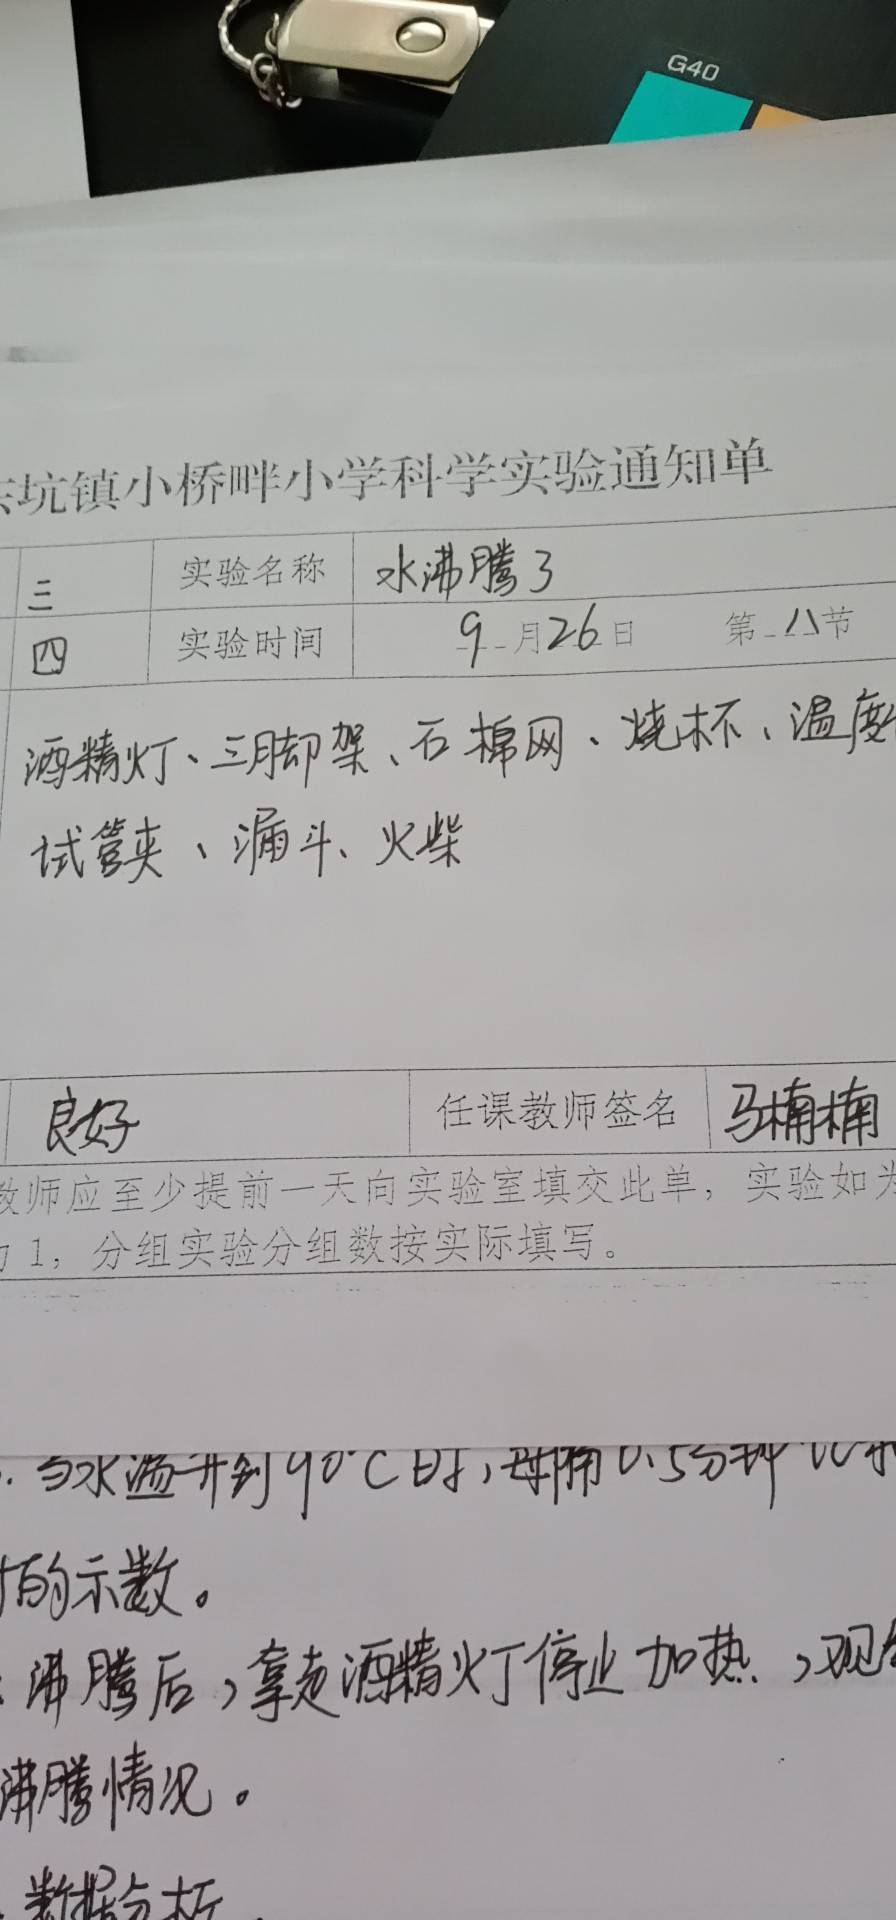 G40
坑镇小桥畔小学科学实验通知单
三 实验名称 水沸腾了
四 实验时间 9月26日 第八节
酒精灯、三脚架、石棉网、烧杯、温度
试管夹、漏斗、火柴
良好 任课教师签名 马楠楠
教师应至少提前一天向实验室填交此单，实验如为
1，分组实验分组数按实际填写。
当水温升到90℃时,每隔0.5分钟
的示数。
沸腾后,拿走酒精灯停止加热,观
沸腾情况。
数据分析